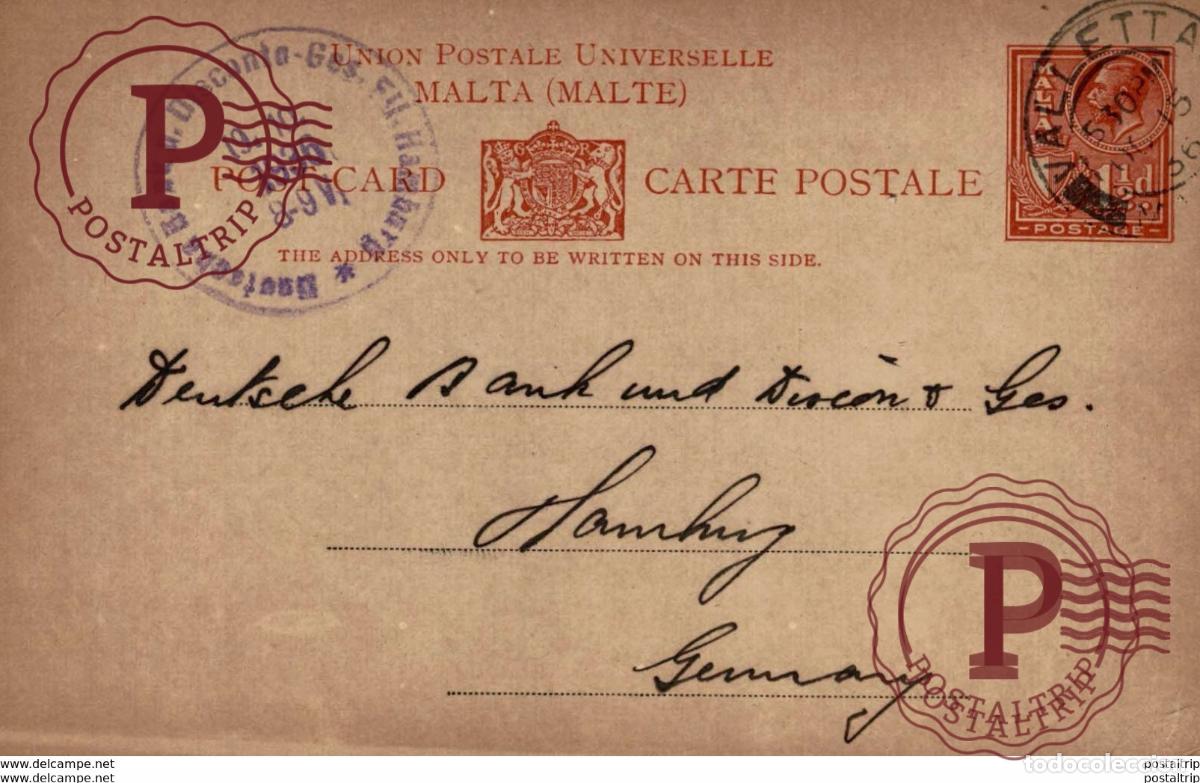 UNION POSTALE UNIVERSELLE
MALTA (MALTE)
POST CARD CARTE POSTALE
THE ADDRESS ONLY TO BE WRITTEN ON THIS SIDE.
MALTA
POSTAGE
VALLETTA
5 30 PM
36
Disconto-Ges. Fil. Hamburg *
Deutsche Bank und Discon & Ges.
Hamburg
Germany
P
POSTALTRIP
P
POSTALTRIP
POSTALTRIP
todocoleccion
www.delcampe.net postaltrip
www.delcampe.net postaltrip